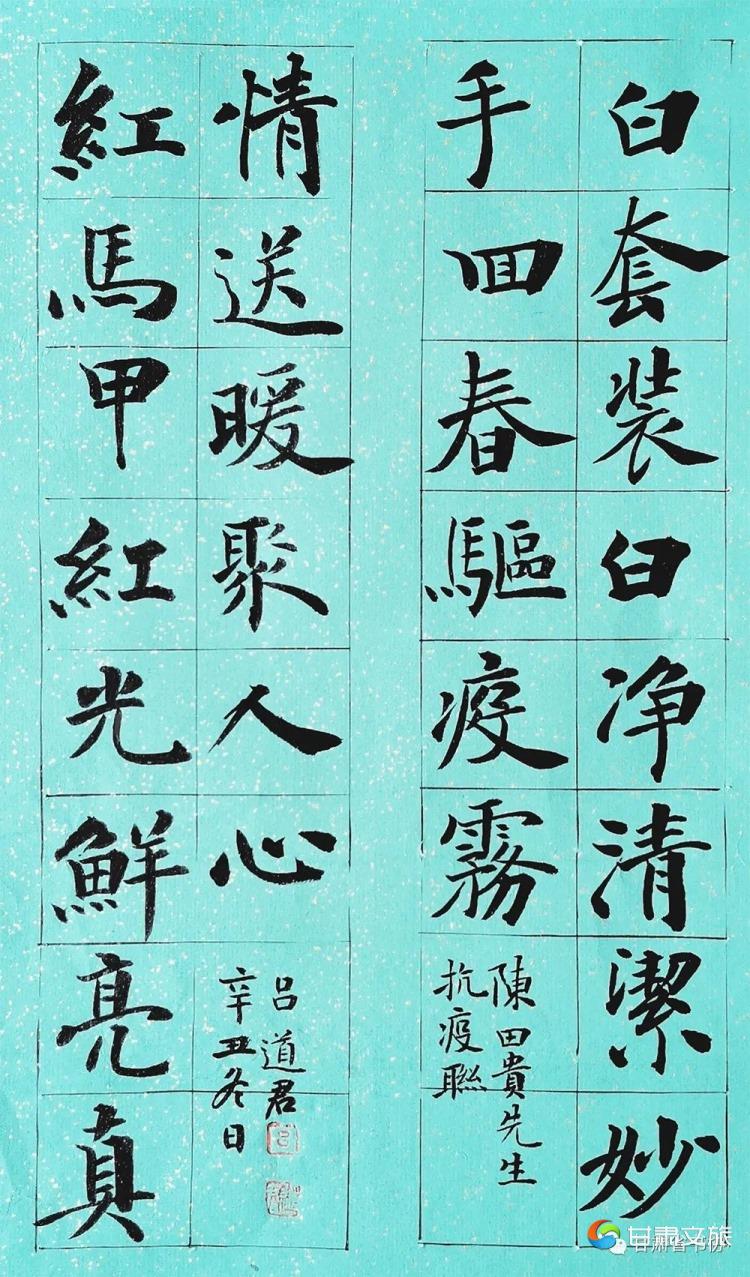 白套装白净清潔妙
手回春驅疫霧
陳田貴先生
抗疫聯
紅馬甲紅光鮮亮真
情送暖聚人心
辛丑冬日
吕道君
甘肃文旅
甘肃省书协